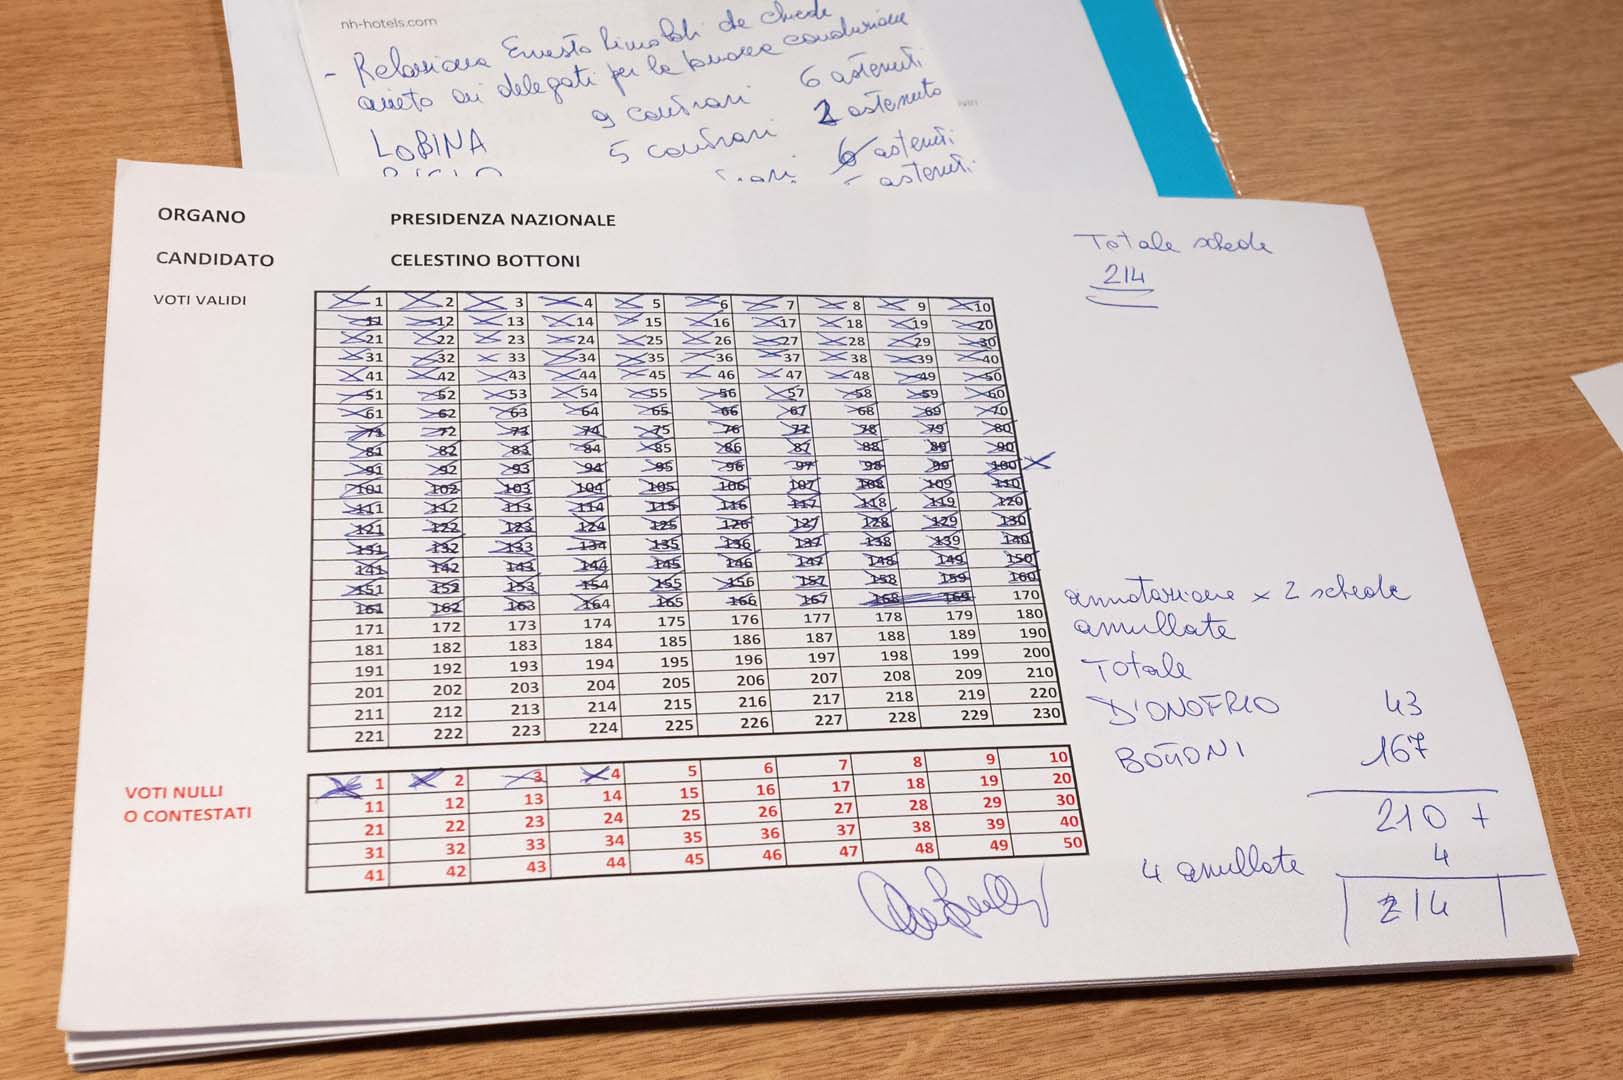 nh-hotels.com
- Relazione Ernesto Rimoldi che chiede
ai delegati per la buona conduzione
9 contrari 6 astenuti
LOBINA 5 contrari 2 astenuto
6 astenuti
astenuti
ORGANO PRESIDENZA NAZIONALE
CANDIDATO CELESTINO BOTTONI
Totale schede
214
VOTI VALIDI
1 2 3 4 5 6 7 8 9 10
11 12 13 14 15 16 17 18 19 20
21 22 23 24 25 26 27 28 29 30
31 32 33 34 35 36 37 38 39 40
41 42 43 44 45 46 47 48 49 50
51 52 53 54 55 56 57 58 59 60
61 62 63 64 65 66 67 68 69 70
71 72 73 74 75 76 77 78 79 80
81 82 83 84 85 86 87 88 89 90
91 92 93 94 95 96 97 98 99 100
101 102 103 104 105 106 107 108 109 110
111 112 113 114 115 116 117 118 119 120
121 122 123 124 125 126 127 128 129 130
131 132 133 134 135 136 137 138 139 140
141 142 143 144 145 146 147 148 149 150
151 152 153 154 155 156 157 158 159 160
161 162 163 164 165 166 167 168 169 170
171 172 173 174 175 176 177 178 179 180
181 182 183 184 185 186 187 188 189 190
191 192 193 194 195 196 197 198 199 200
201 202 203 204 205 206 207 208 209 210
211 212 213 214 215 216 217 218 219 220
221 222 223 224 225 226 227 228 229 230
annotazione x 2 schede
annullate
Totale
D'ONOFRIO 43
BOTTONI 167
210 +
4 annullate 4
214
VOTI NULLI
O CONTESTATI
1 2 3 4 5 6 7 8 9 10
11 12 13 14 15 16 17 18 19 20
21 22 23 24 25 26 27 28 29 30
31 32 33 34 35 36 37 38 39 40
41 42 43 44 45 46 47 48 49 50